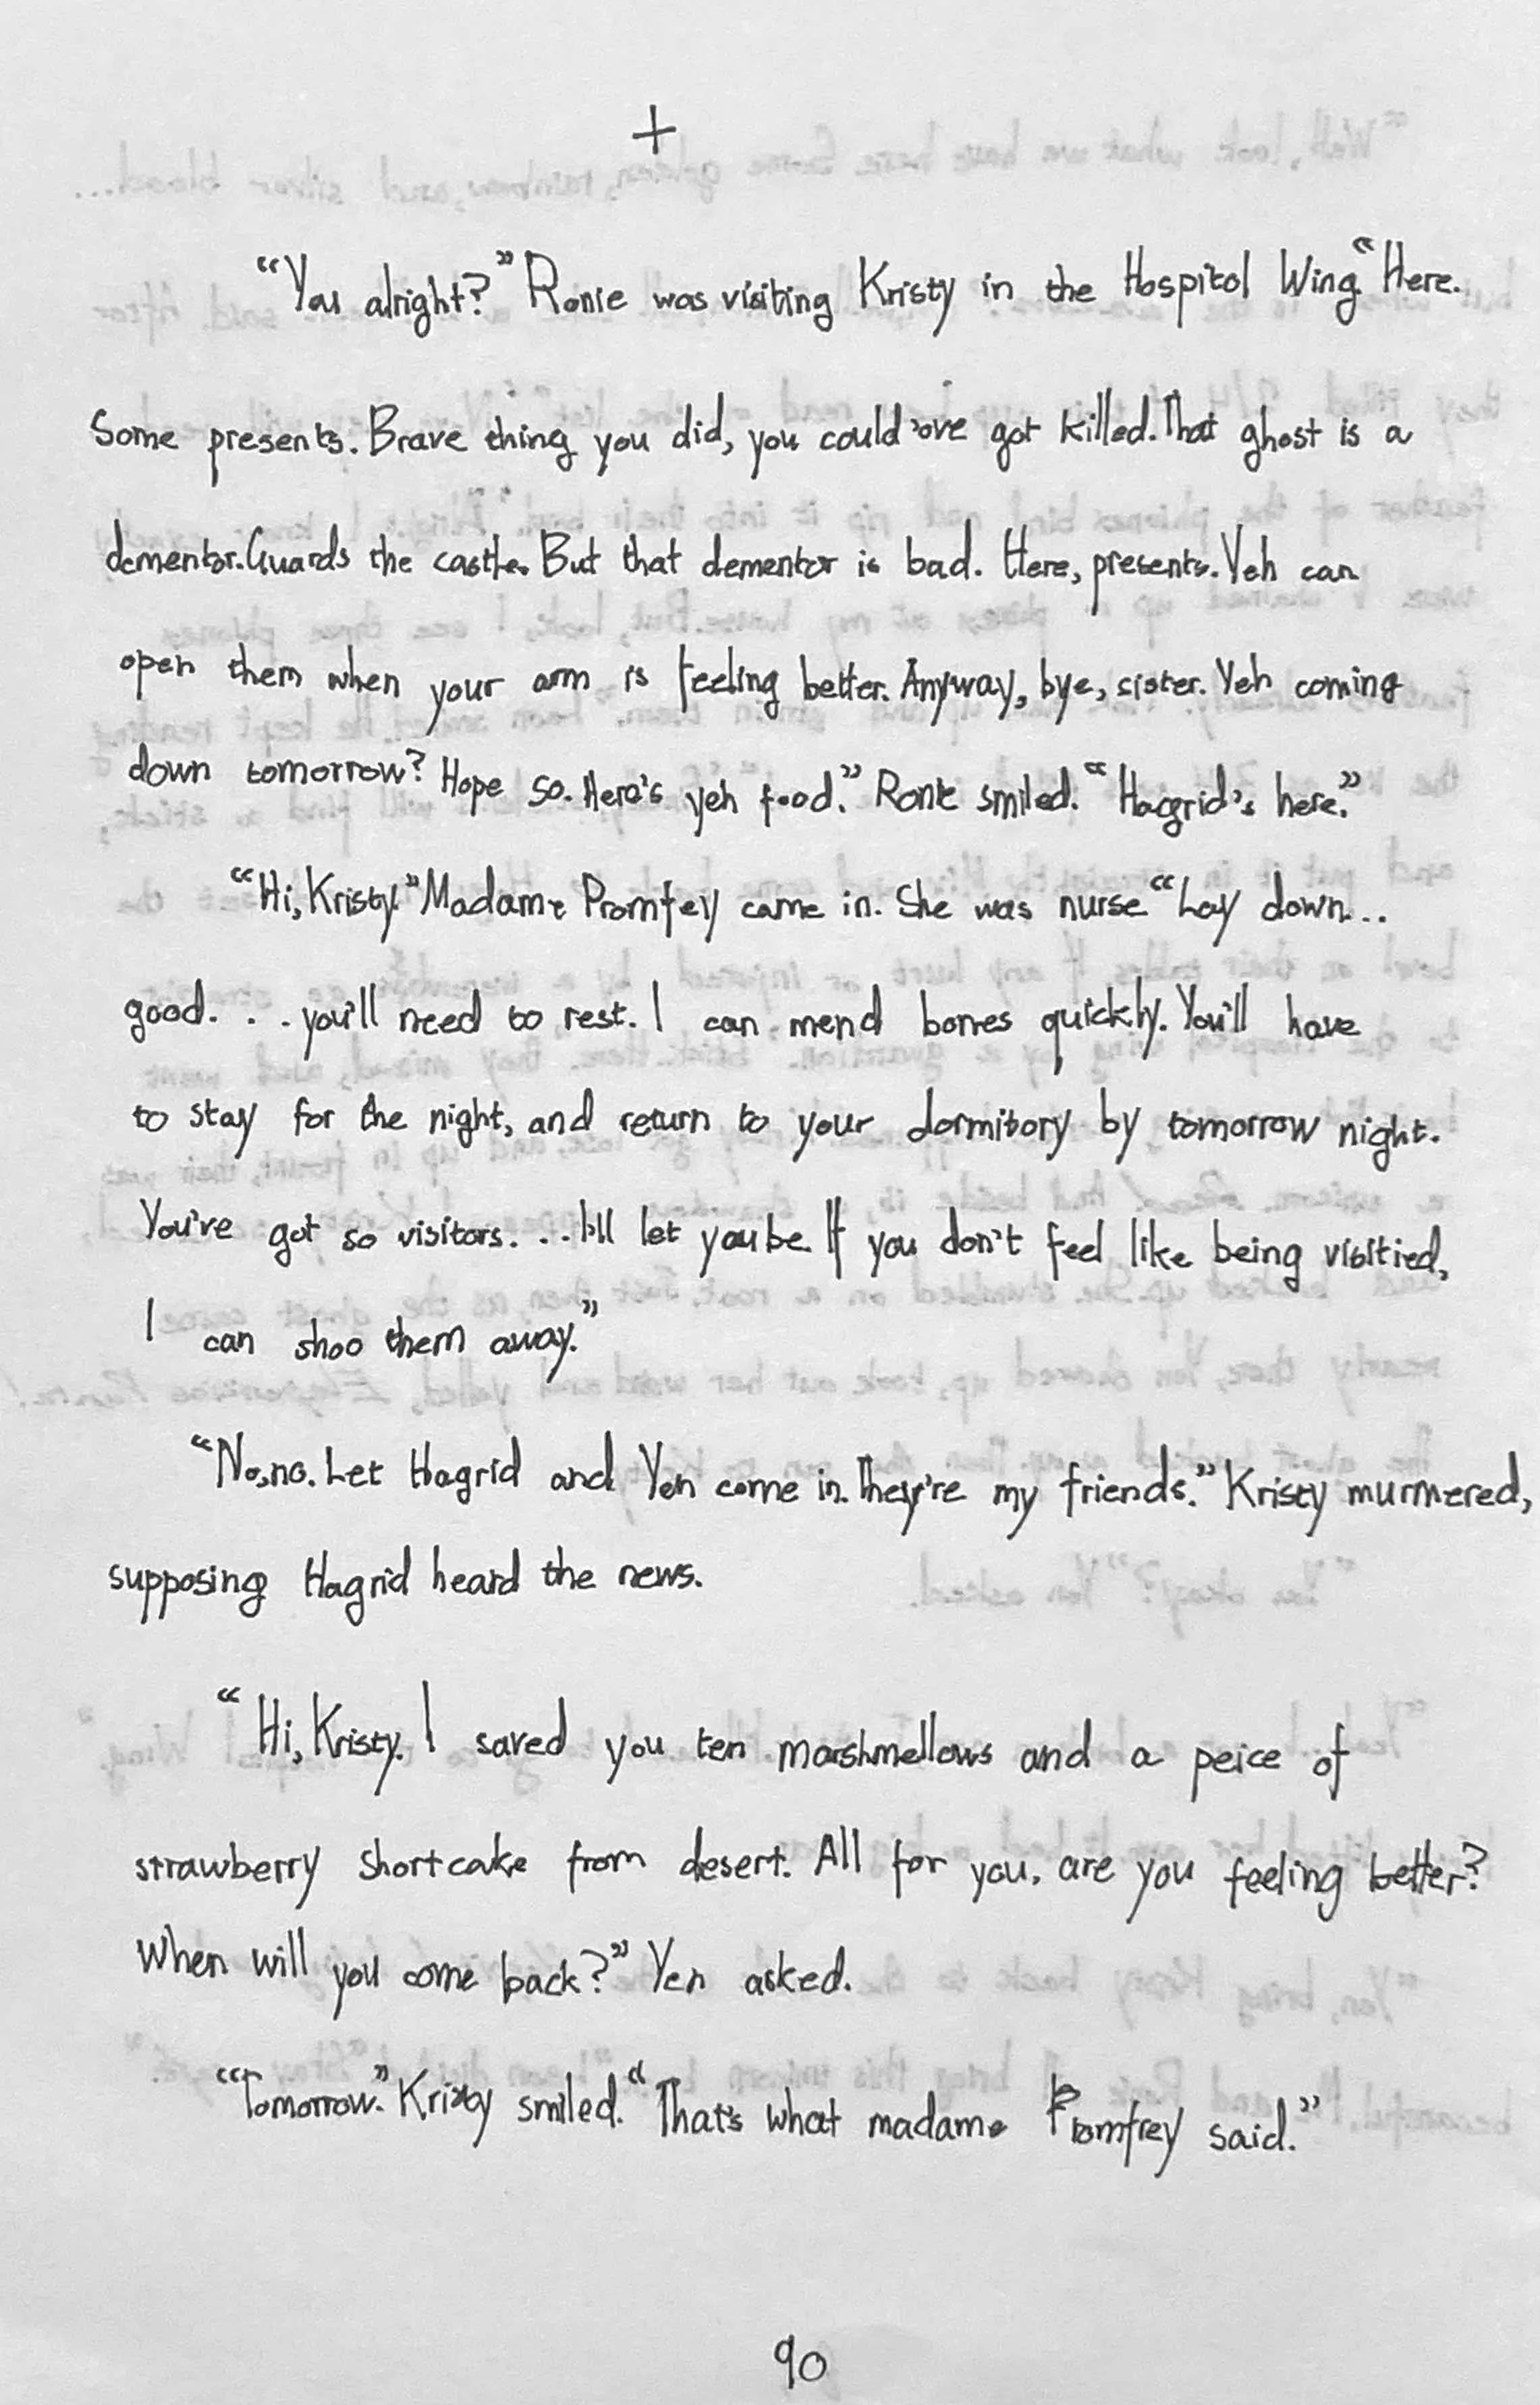 +
“You alright?” Ronie was visiting Kristy in the Hospitol Wing. “Here.
Some presents. Brave thing you did, you could 'ove got killed. That ghost is a
dementor. Guards the castle. But that dementor is bad. Here, presents. Yeh can
open them when your arm is feeling better. Anyway, bye, sister. Yeh coming
down tomorrow? Hope so. Here's yeh food.” Ronie smiled. “Hagrid's here.”
“Hi, Kristy.” Madame Promfey came in. She was nurse “Lay down...
good. . . you'll need to rest. I can mend bones quickly. You'll have
to stay for the night, and return to your dormitory by tomorrow night.
You've got so visitors. . . I'll let you be. If you don't feel like being visitied,
I can shoo them away.”
“No, no. Let Hagrid and Yen come in. They're my friends.” Kristy murmered,
supposing Hagrid heard the news.
“Hi, Kristy. I saved you ten marshmellows and a peice of
strawberry shortcake from desert. All for you. are you feeling better?
When will you come back?” Yen asked.
“Tomorrow.” Kristy smiled. “That's what madame Promfrey said.”
90